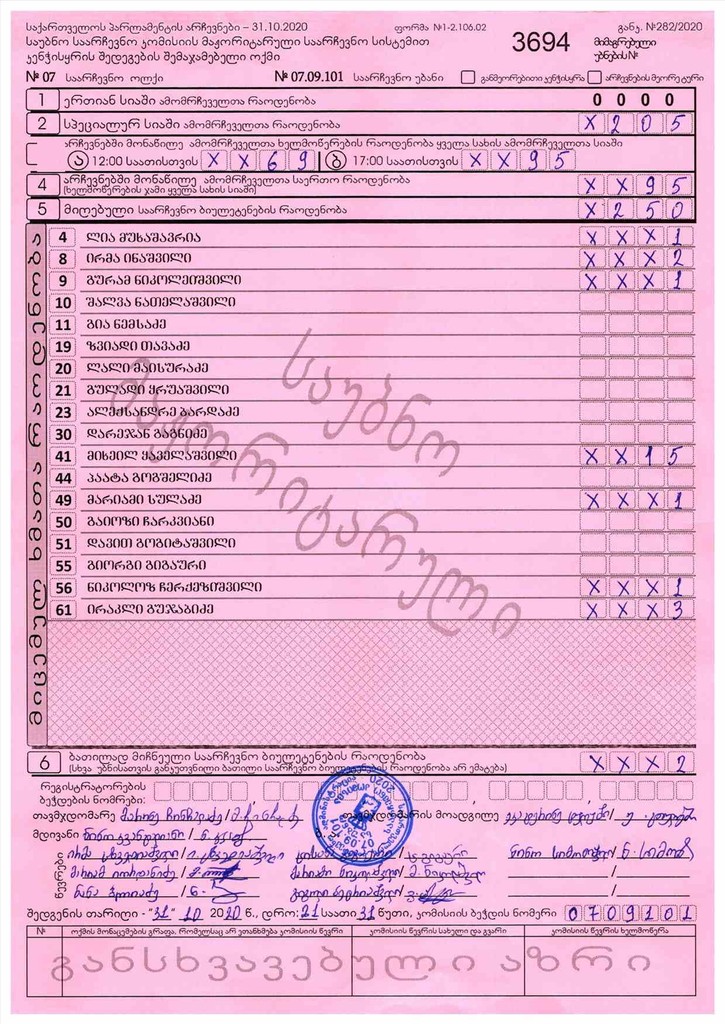 საქართველოს პარლამენტის არჩევნები – 31.10.2020 ფორმა №1-2.106.02 განკ. №282/2020
საუბნო საარჩევნო კომისიის მაჟორიტარული საარჩევნო სისტემით 3694 მიმაგრებული
კენჭისყრის შედეგების შემაჯამებელი ოქმი უბნების №
№ 07 საარჩევნო ოლქი № 07.09.101 საარჩევნო უბანი განმეორებითი კენჭისყრა არჩევნების მეორე ტური
1 ერთიან სიაში ამომრჩეველთა რაოდენობა 0 0 0 0
2 სპეციალურ სიაში ამომრჩეველთა რაოდენობა X 2 0 5
არჩევნებში მონაწილე ამომრჩეველთა ხელმოწერების რაოდენობა ყველა სახის ამომრჩეველთა სიაში
ა 12:00 საათისთვის X X 6 9 ბ 17:00 საათისთვის X X 9 5
4 არჩევნებში მონაწილე ამომრჩეველთა საერთო რაოდენობა X X 9 5
(ხელმოწერების ჯამი ყველა სახის სიაში)
5 მიღებული საარჩევნო ბიულეტენების რაოდენობა X 2 5 0
მიცემულ ხმათა რაოდენობა
4 ლია მუხაშავრია X X X 1
8 ირმა ინაშვილი X X X 2
9 გურამ ნიკოლეიშვილი X X X 1
10 შალვა ნათელაშვილი
11 გია ნემსაძე
19 ზვიადი თავაძე
20 ლალი მაისურაძე
21 გულადი ყრუაშვილი
23 ალექსანდრე ბარდაძე
30 დარეჯან გაგნიძე
41 მიხეილ ყაველაშვილი X X 1 5
44 პაატა გოგშელიძე
49 მარიამი სულაძე X X X 1
50 გაიოზი ჩარკვიანი
51 დავით გოგიტაშვილი
55 გიორგი გიგაური
56 ნიკოლოზ ჩერქეზიშვილი X X X 1
61 ირაკლი გუჯაბიძე X X X 3
საუბნო
მაჟორიტარული
6 ბათილად მიჩნეული საარჩევნო ბიულეტენების რაოდენობა X X X 2
(სხვა უბნისათვის განკუთვნილი ბათილი საარჩევნო ბიულეტენების რაოდენობა არ ემატება)
რეგისტრატორების
ბეჭდების ნომრები:
თავმჯდომარე თავმჯდომარის მოადგილე
მდივანი
წევრები
შედგენის თარიღი - "31" 10 2020 წ., დრო: 21 საათი 31 წუთი, კომისიის ბეჭდის ნომერი 0 7 0 9 1 0 1
№ ოქმის მონაცემების გრაფა, რომელსაც არ ეთანხმება კომისიის წევრი კომისიის წევრის სახელი და გვარი კომისიის წევრის ხელმოწერა
განსხვავებული აზრი